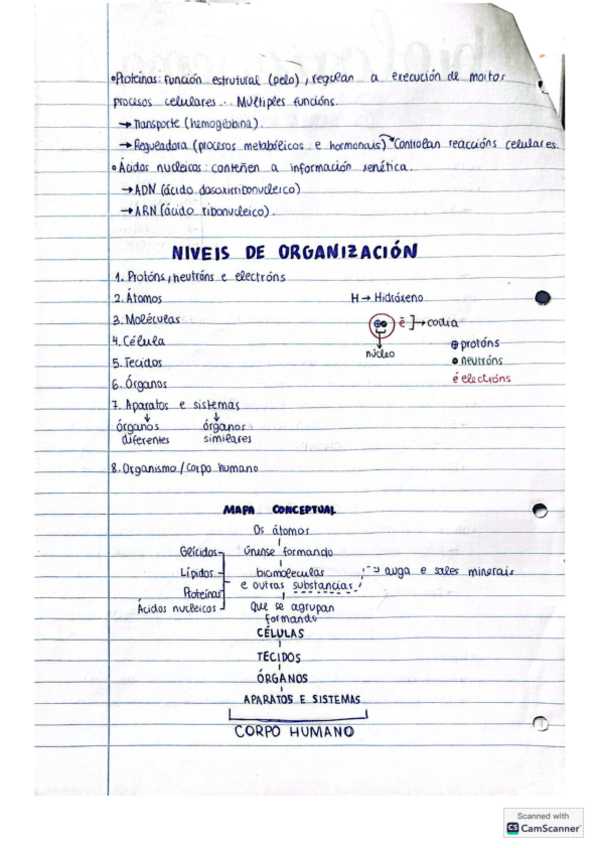 •Proteínas: función estrutural (pelo), regulan a execución de moitos
procesos celulares... Múltiples funcións.
→ Transporte (hemoglobina).
→ Regueadora (procesos metabólicos e hormonais) → Controlan reaccións celulares.
•Ácidos nucleicos: conteñen a información xenética.
→ ADN (ácido dosoxirribonucleico)
→ ARN (ácido ribonucleico).
NIVEIS DE ORGANIZACIÓN
1. Protóns, neutróns e electróns
2. Átomos
H → Hidróxeno
3. Moléculas
ē ]→ codia
4. Célula
núcleo
⊕ protóns
5. Tecidos
• neutróns
6. Órganos
ē electróns
7. Aparatos e sistemas
↓ ↓
órganos órganos
diferentes similares
8. Organismo / Corpo humano
MAPA CONCEPTUAL
Os átomos
Glícidos únense formando
Lípidos biomoleculas → auga e sales minerais
Proteínas e outras substancias
Ácidos nucleicos Que se agrupan
formando
CÉLULAS
TECIDOS
ÓRGANOS
APARATOS E SISTEMAS
CORPO HUMANO
1
Scanned with
CS CamScanner